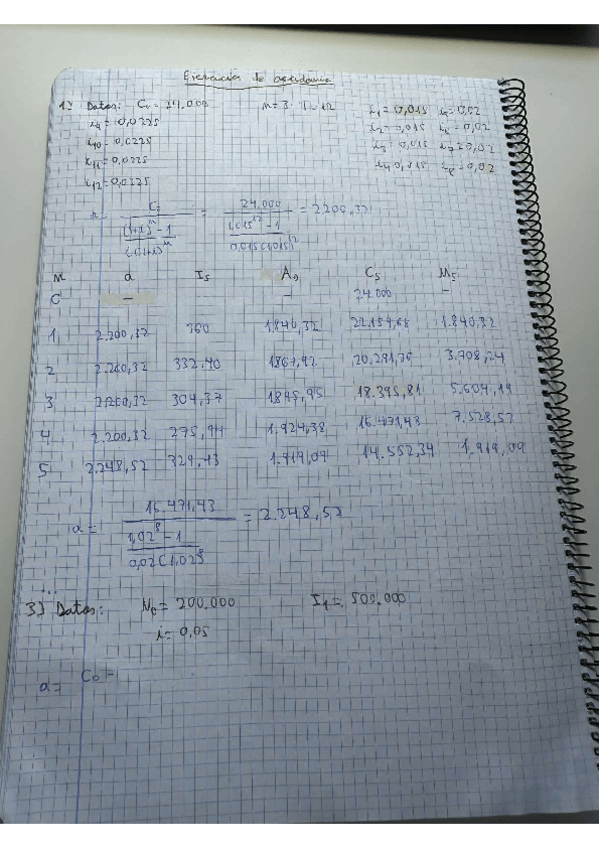 Ejercicios de
1) Datos: C₀ = 24.000 n = 3 · 4 = 12 i₁ = 0,015 i₅ = 0,02
i₉ = 0,0225 i₂ = 0,015 i₆ = 0,02
i₁₀ = 0,0225 i₃ = 0,015 i₇ = 0,02
i₁₁ = 0,0225 i₄ 0,015 i₈ = 0,02
i₁₂ = 0,0225
24.000
= 2200,32
1,015¹² - 1
0,015(1,015)¹²
a I₅ C₅ M₅
0 - - 24.000 -
1 2.200,32 360 1.840,32 22.159,68 1.840,32
2 2.200,32 332,40 1867,92 20.291,76 3.708,24
3 2200,32 304,37 1895,95 18.395,81 5.604,19
4 2.200,32 275,94 1.924,38 16.471,43 7.528,57
5 2.248,52 329,43 1.919,09 14.552,34 1.919,09
a = 16.471,43 = 2.248,52
1,02⁸ - 1
0,02(1,02)⁸
...
3) Datos: = 200.000 I₁ = 500.000
i = 0,05
a = C₀ =